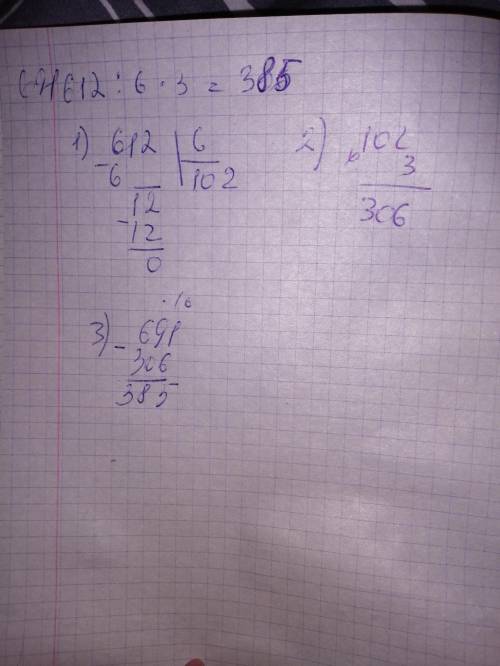 691-612:6·3=385
1) 612 | 6
2) 102
-6 | 102
3
12
306
-12
0
3) 691
-306
385